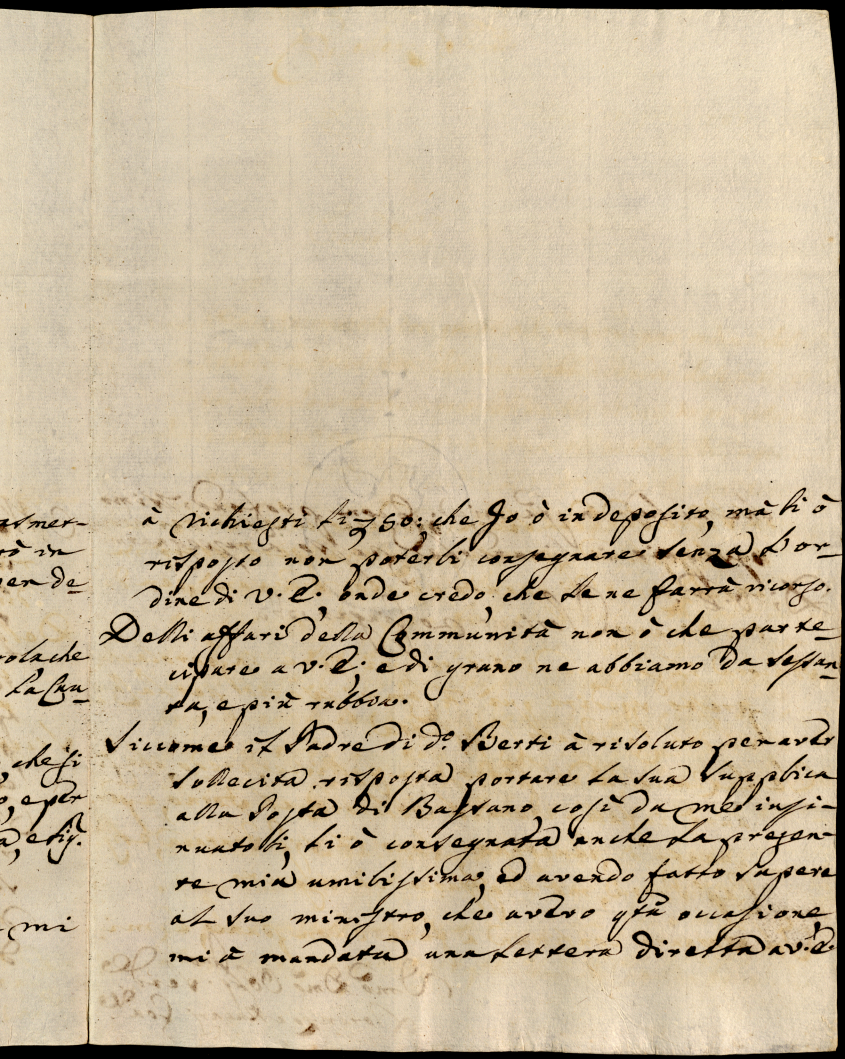 asmet-
rò in
per de-
rola che
La Cau-
, che si
o, e per
a, e sig.
mi
à richiesti li 50: che Jo ò in deposito, mà li ò
risposto non poterli consegnare senza l'or-
dine di V. E., onde credo, che se ne farrà ricorso.
Delli affari della Communità non ò che parte-
cipare a V. E., e di grano ne abbiamo da sessan-
ta, e più rubbia.
Siccome il Padre di do. Berti à risoluto per aver
sollecita risposta portare la sua supplica
alla Posta di Bassano, così da me insi-
nuatoli, li ò consegnata anche la presen-
te mia umilissima, ed avendo fatto sapere
al suo ministro, che avevo qta occasione,
mi à mandata una lettera diretta a V. E.